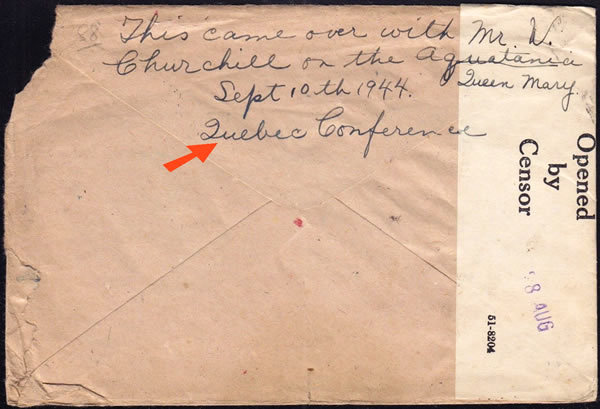 This came over with Mr. W.
Churchill on the Aquatania
Queen Mary
Sept 10th 1944.
Quebec Conference
Opened
by
Censor
8 AUG
51-8204